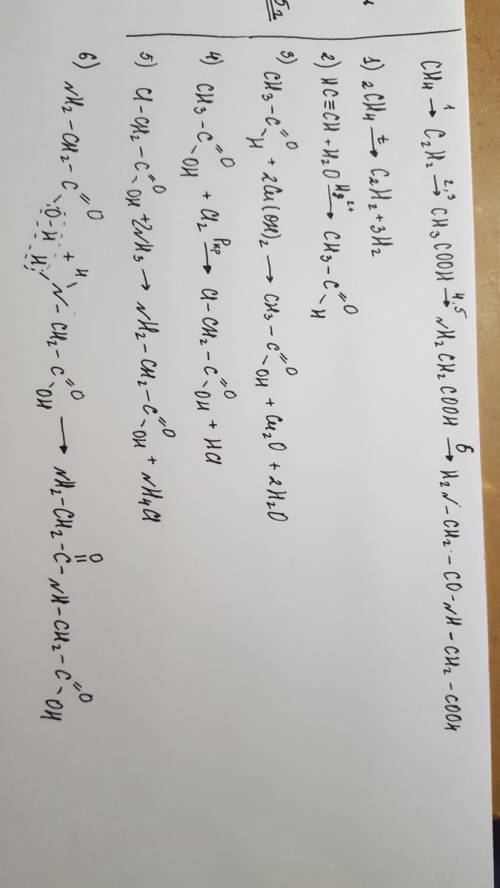 CH₄ →¹ C₂H₂ →²,³ CH₃COOH →⁴,⁵ NH₂CH₂COOH →⁶ H₂N–CH₂–CO–NH–CH₂–COOH
1) 2CH₄ →ᵗ C₂H₂ + 3H₂
2) HC≡CH + H₂O →Hg²⁺ CH₃–C(=O)–H
3) CH₃–C(=O)–H + 2Cu(OH)₂ → CH₃–C(=O)–OH + Cu₂O + 2H₂O
4) CH₃–C(=O)–OH + Cl₂ →Pкр Cl–CH₂–C(=O)–OH + HCl
5) Cl–CH₂–C(=O)–OH + 2NH₃ → NH₂–CH₂–C(=O)–OH + NH₄Cl
6) NH₂–CH₂–C(=O)–O–H + H–N(–H)–CH₂–C(=O)–OH → NH₂–CH₂–C(=O)–NH–CH₂–C(=O)–OH